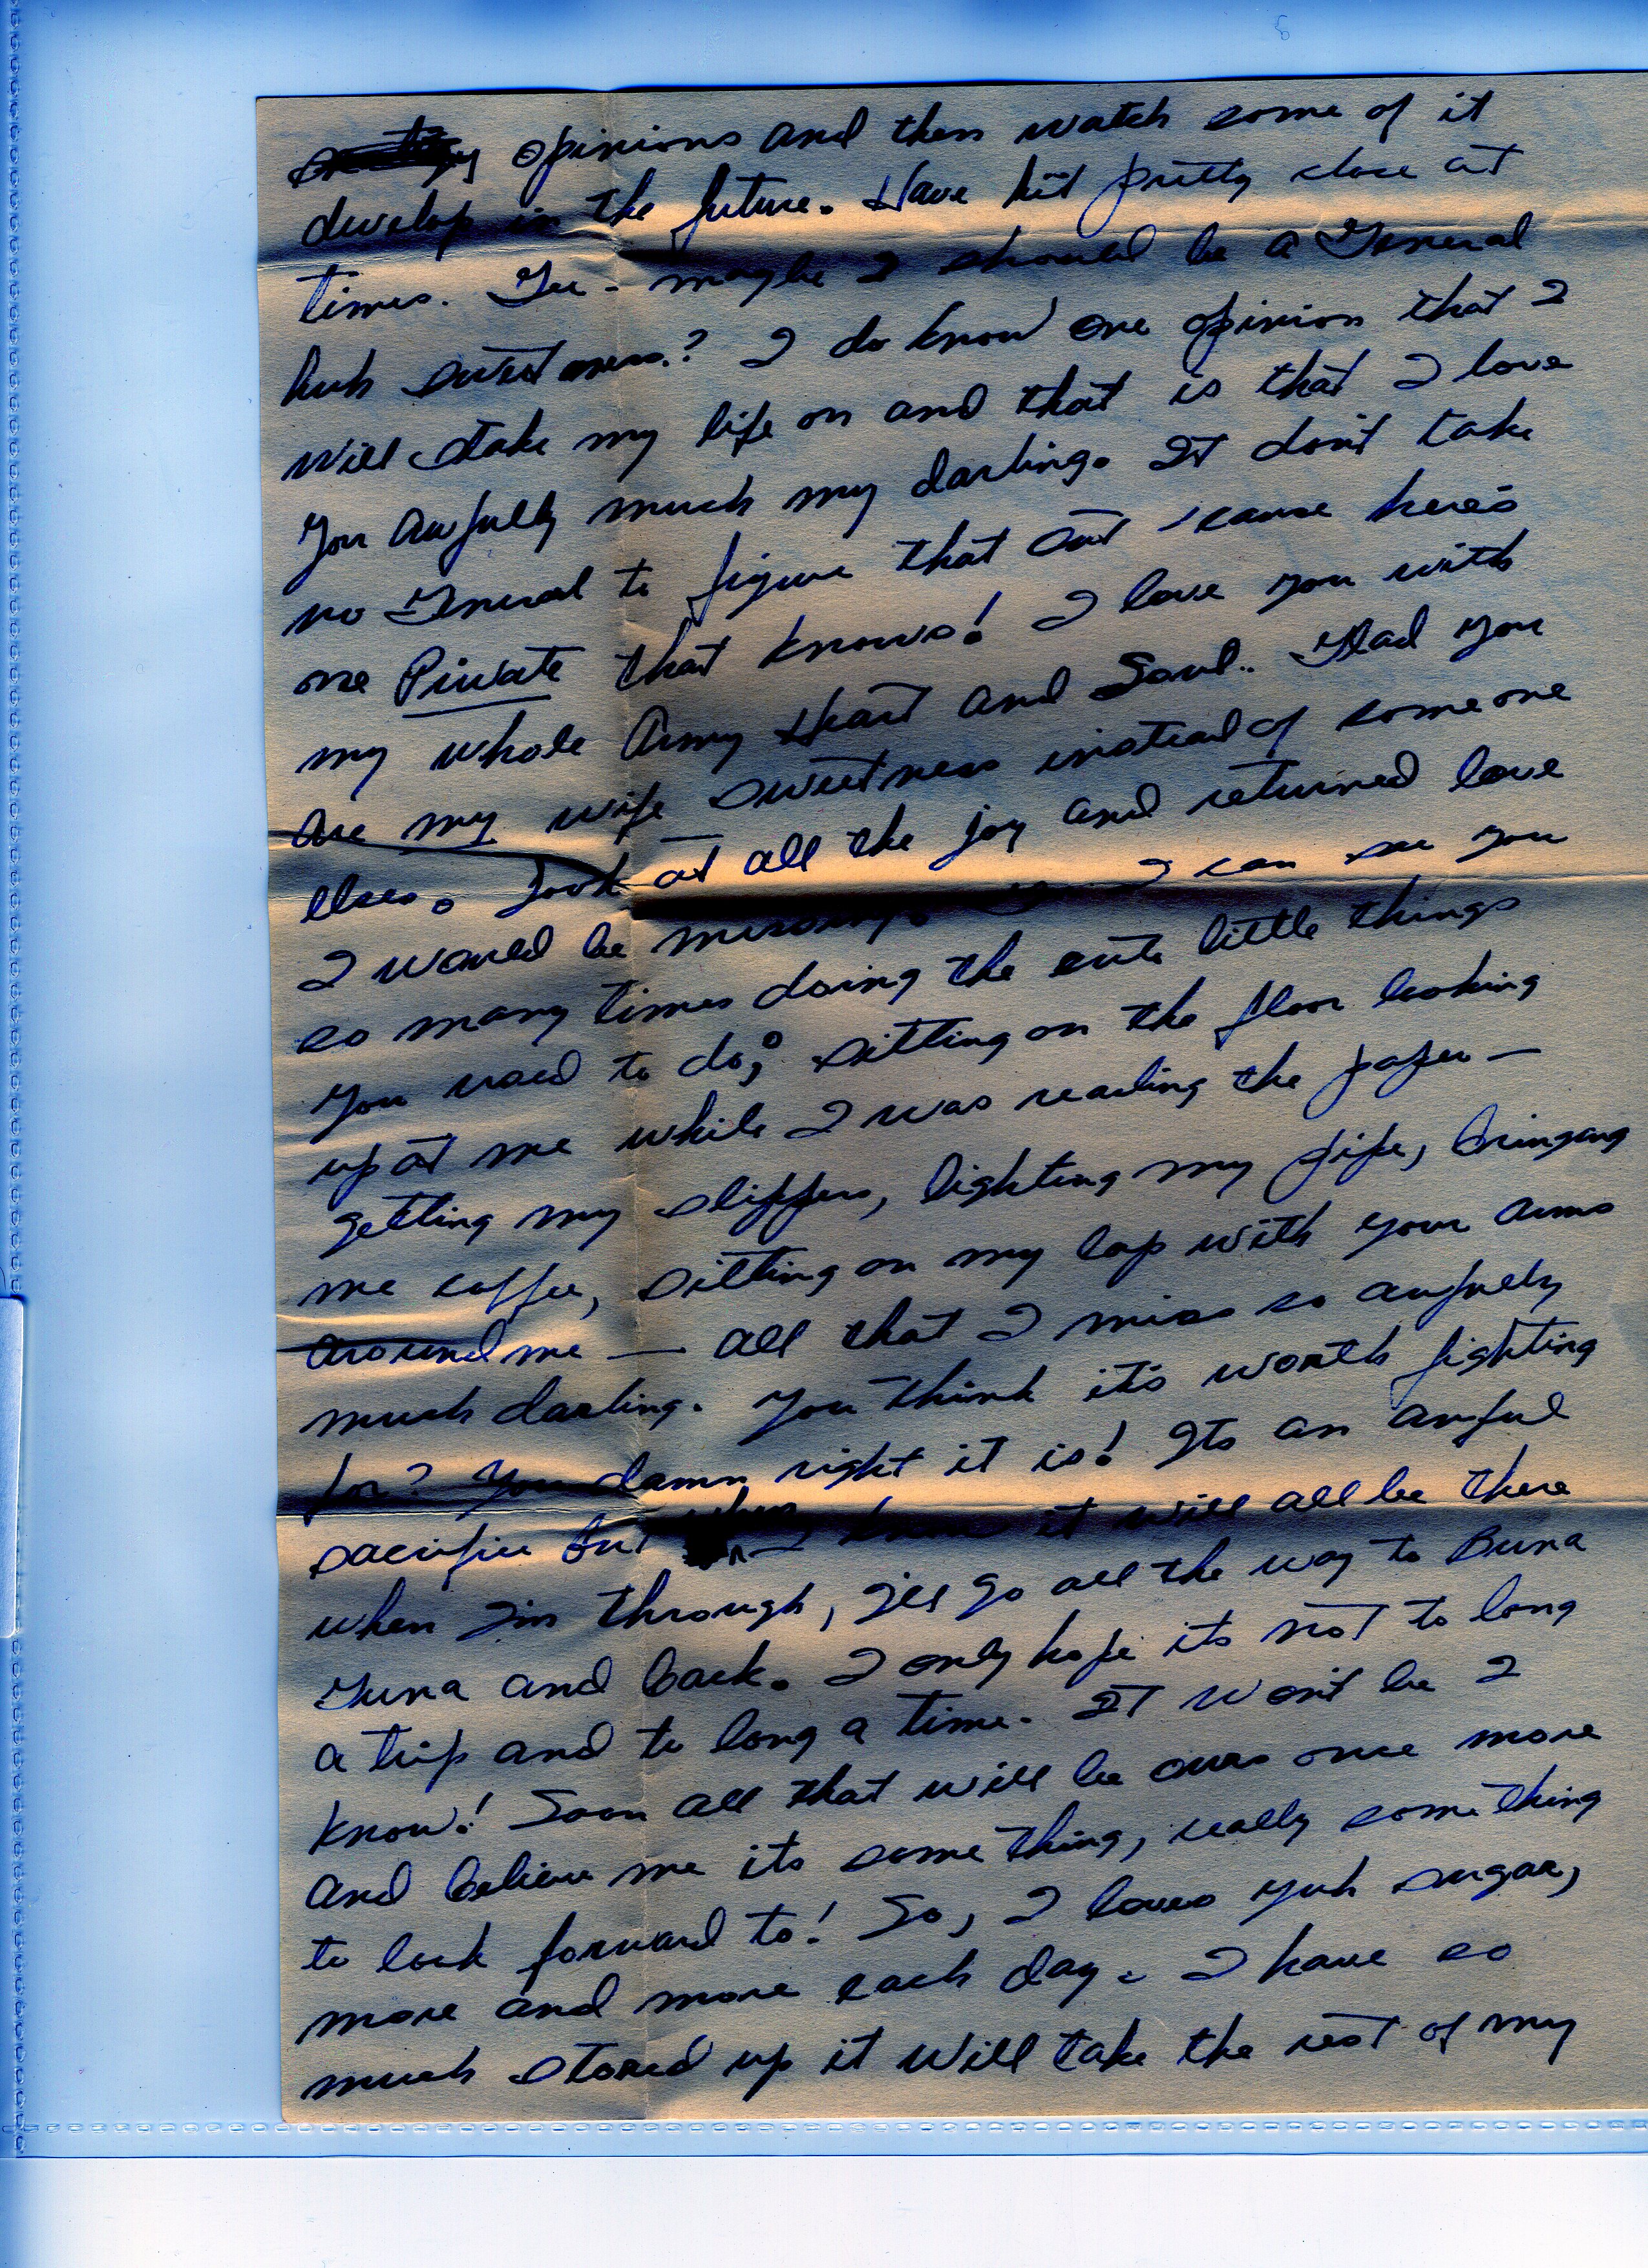 opinions and then watch some of it
develop in the future. Have hit pretty close at
times. Gee - maybe I should be a General
huh sweetness? I do know one opinion that I
will stake my life on and that is that I love
you awfully much my darling. It don't take
no General to figure that out 'cause here's
one Private that knows! I love you with
my whole Army Heart and Soul. Glad you
are my wife sweetness instead of someone
else. Look at all the joy and returned love
I would be missing. I can see you
so many times doing the cute little things
you used to do; sitting on the floor looking
up at me while I was reading the paper —
getting my slippers, lighting my pipe, bringang
me coffee, sitting on my lap with your arms
around me — all that I miss so awfully
much darling. You think it's worth fighting
for? You damn right it is! Its an awful
sacrifice but when I know it will all be there
when I'm through, I'll go all the way to Buna
Guna and back. I only hope its not to long
a trip and to long a time. It won't be I
know! Soon all that will be ours once more
and believe me its something, really something
to look forward to! So, I loves yuh sugar,
more and more each day. I have so
much stored up it will take the rest of my